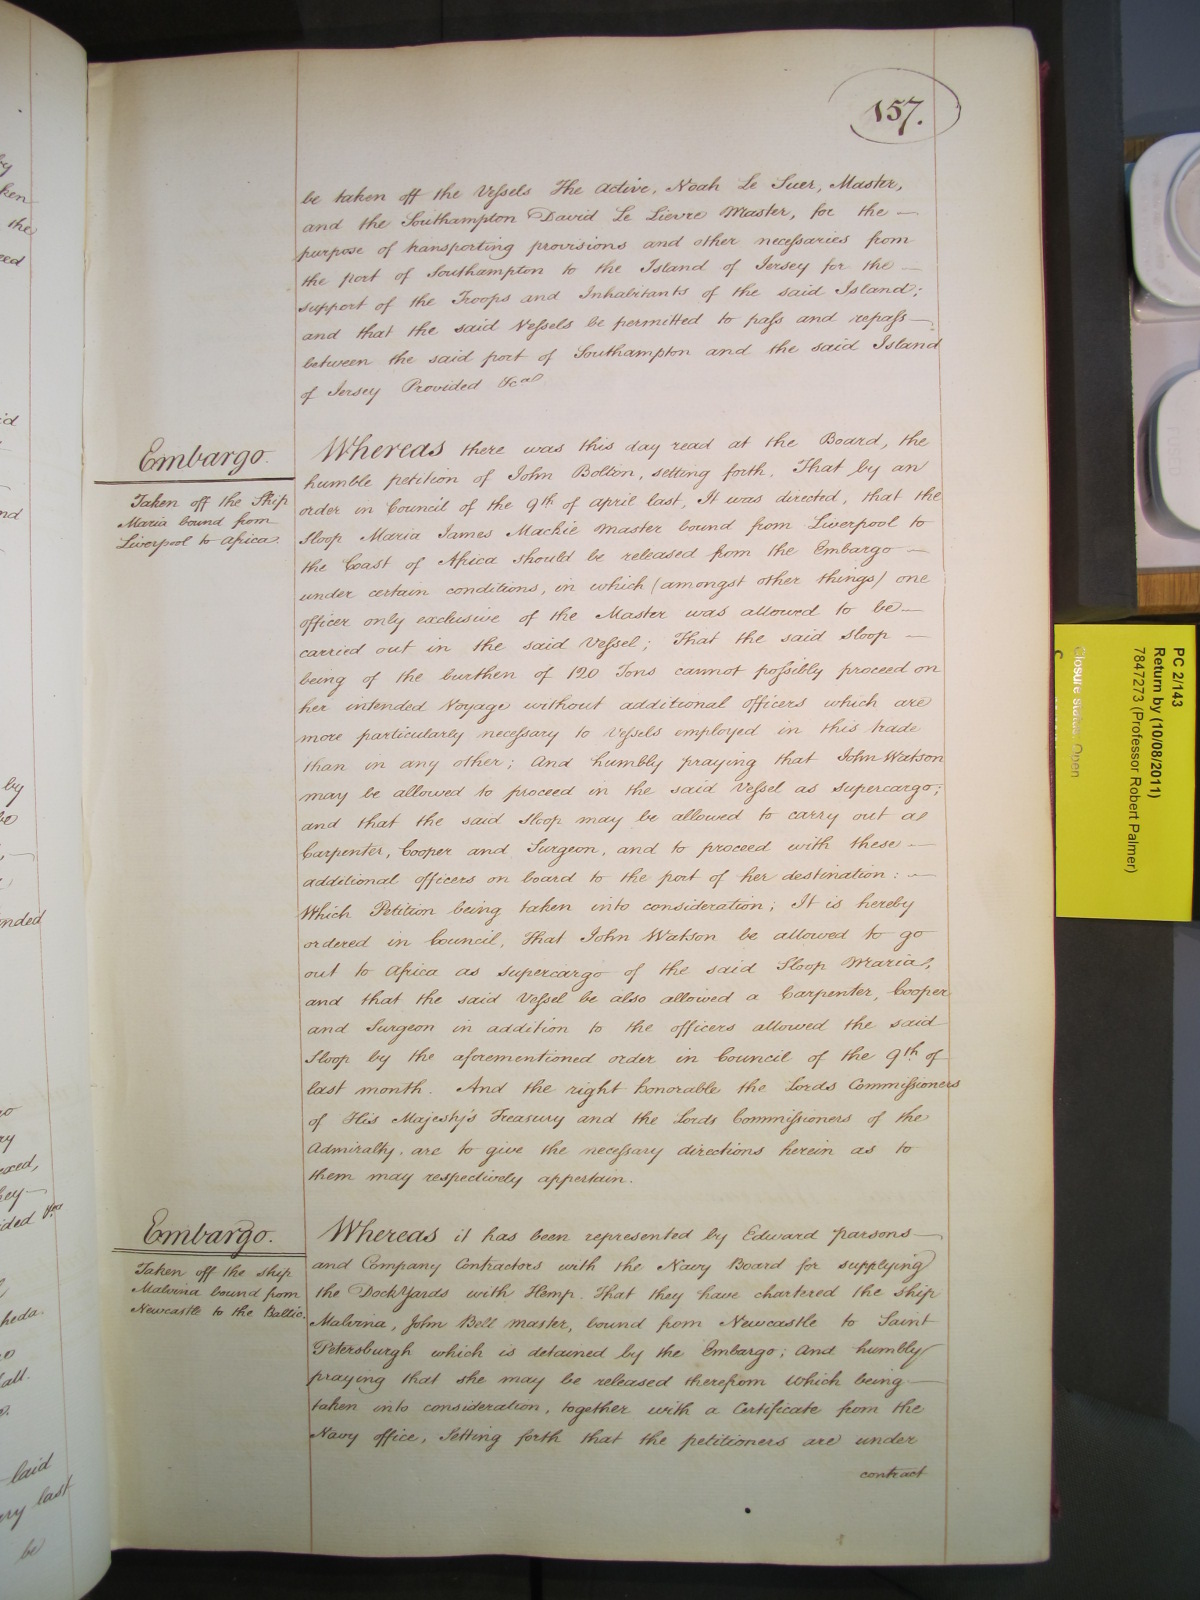 157.
be taken off the Vessels The Active, Noah Le Suer, Master,
and the Southampton David Le Lievre Master, for the —
purpose of transporting provisions and other necessaries from
the port of Southampton to the Island of Jersey for the —
support of the Troops and Inhabitants of the said Island;
and that the said Vessels be permitted to pass and repass —
between the said port of Southampton and the said Island
of Jersey Provided &ca
Embargo.
Taken off the Ship
Maria bound from
Liverpool to Africa.
Whereas there was this day read at the Board, the
humble petition of John Bolton, setting forth, That by an
order in Council of the 9th of April last, It was directed, that the
Sloop Maria James Mackie Master bound from Liverpool to
the Coast of Africa should be released from the Embargo —
under certain conditions, in which (amongst other things) one
officer only exclusive of the Master was allowed to be —
carried out in the said Vessel; That the said Sloop —
being of the burthen of 120 Tons cannot possibly proceed on
her intended Voyage without additional officers which are
more particularly necessary to Vessels employed in this trade
than in any other; And humbly praying that John Watson
may be allowed to proceed in the said Vessel as supercargo;
and that the said Sloop may be allowed to carry out a
Carpenter, Cooper and Surgeon, and to proceed with these —
additional officers on board to the port of her destination: —
Which Petition being taken into consideration; It is hereby
ordered in Council, That John Watson be allowed to go
out to Africa as supercargo of the said Sloop Maria,
and that the said Vessel be also allowed a Carpenter, Cooper
and Surgeon in addition to the officers allowed the said
Sloop by the aforementioned order in Council of the 9th of
last month. And the right honorable the Lords Commissioners
of His Majesty's Treasury and the Lords Commissioners of the
Admiralty, are to give the necessary directions herein as to
them may respectively appertain.
Embargo.
Taken off the ship
Malvina bound from
Newcastle to the Baltic.
Whereas it has been represented by Edward Parsons —
and Company Contractors with the Navy Board for supplying
the Dock Yards with Hemp. That they have chartered the ship
Malvina, John Bell master, bound from Newcastle to Saint
Petersburgh which is detained by the Embargo; And humbly
praying that she may be released therefrom which being —
taken into consideration, together with a Certificate from the
Navy office, Setting forth that the petitioners are under
contract
PC 2/143
Return by (10/08/2011)
7847273 (Professor Robert Palmer)
Closure status: Open